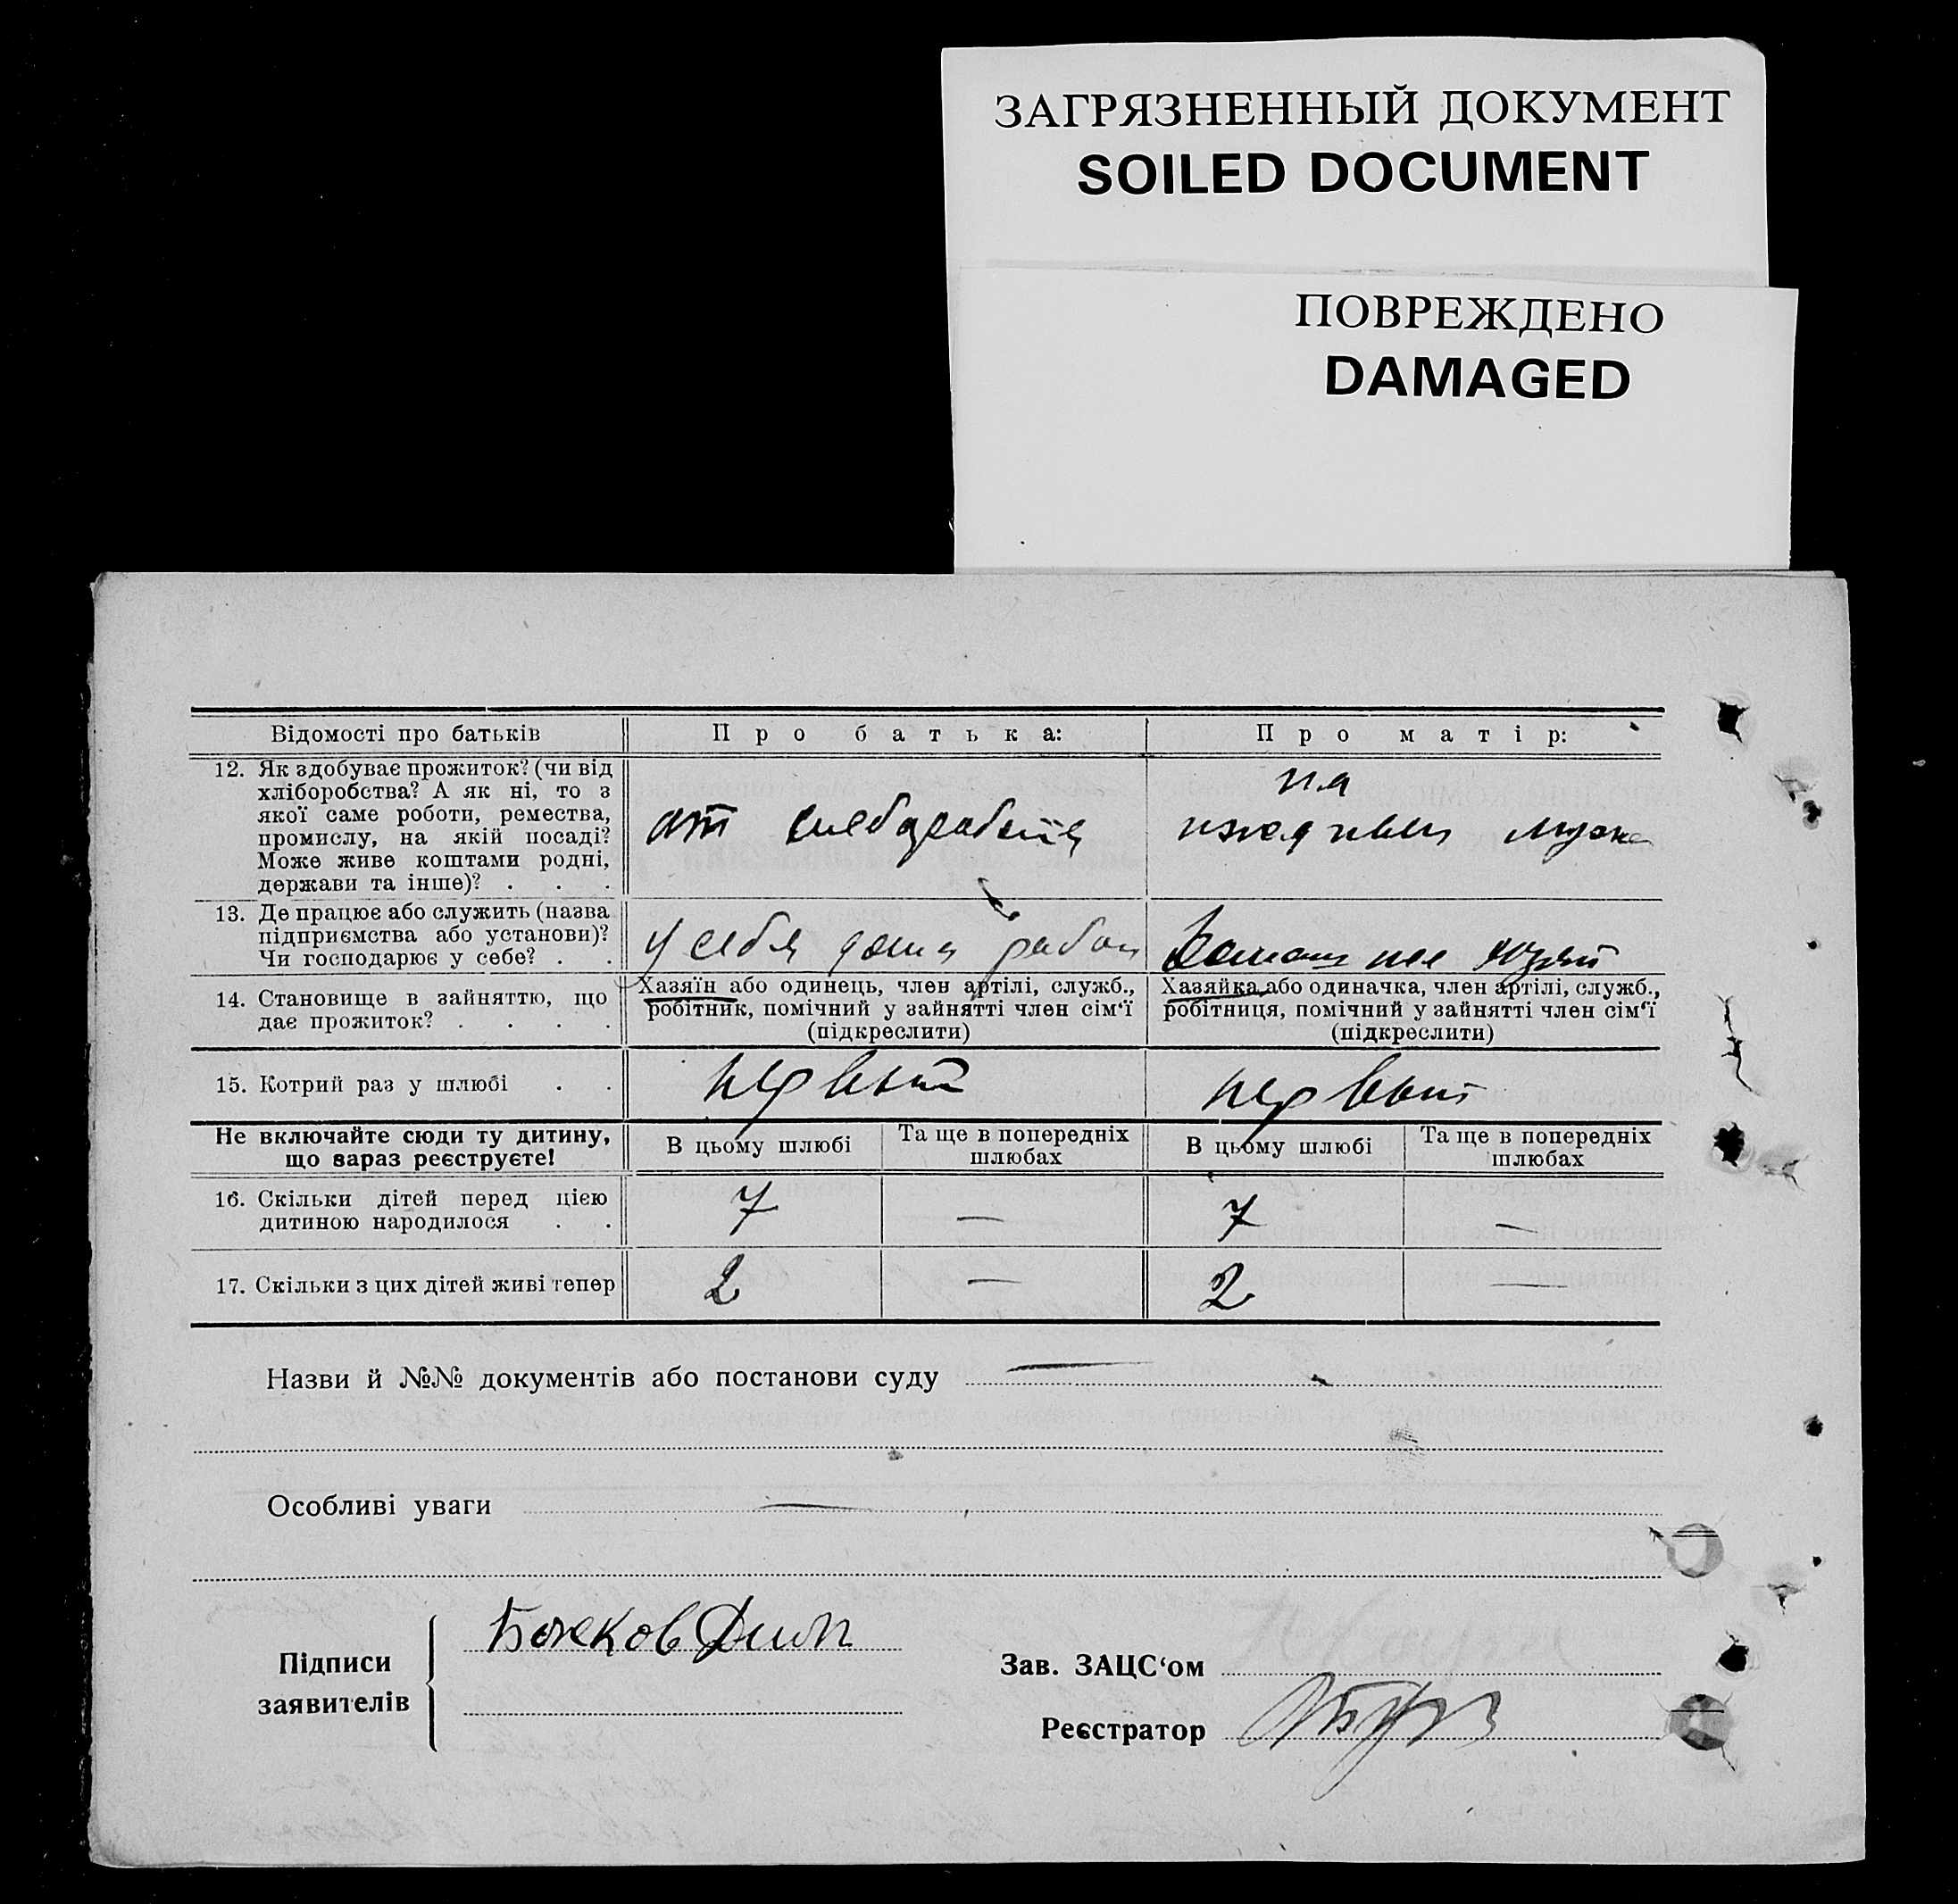 ЗАГРЯЗНЕННЫЙ ДОКУМЕНТ
SOILED DOCUMENT
ПОВРЕЖДЕНО
DAMAGED
Відомості про батьків
Про батька:
Про матір:
12. Як здобуває прожиток? (чи від
хліборобства? А як ні, то з
якої саме роботи, ремества,
промислу, на якій посаді?
Може живе коштами родні,
держави та інше)? . . .
от
на
13. Де працює або служить (назва
підприємства або установи)?
Чи господарює у себе? . .
у себя дома
14. Становище в зайняттю, що
дає прожиток? . . . .
Хазяїн або одинець, член артілі, служб.,
робітник, помічний у зайнятті член сім'ї
(підкреслити)
Хазяйка або одиначка, член артілі, служб.,
робітниця, помічний у зайнятті член сім'ї
(підкреслити)
15. Котрий раз у шлюбі . .
первый
первый
Не включайте сюди ту дитину,
що зараз реєструєте!
В цьому шлюбі
Та ще в попередніх
шлюбах
В цьому шлюбі
Та ще в попередніх
шлюбах
16. Скільки дітей перед цією
дитиною народилося . .
7 — 7 —
17. Скільки з цих дітей живі тепер
2 — 2 —
Назви й №№ документів або постанови суду —
Особливі уваги —
Підписи
заявителів
Зав. ЗАЦС'ом
Реєстратор